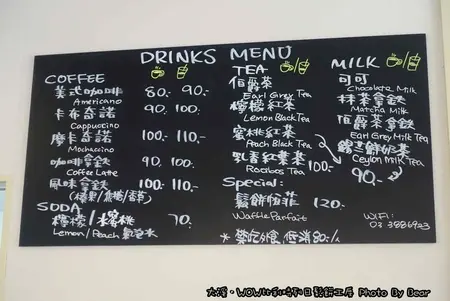 DRINKS MENU
COFFEE
美式咖啡 80.- 90.-
Americano
卡布奇諾 90.- 100.-
Cappuccino
摩卡奇諾 100.- 110.-
Mochaccino
咖啡拿鐵 90.- 100.-
Coffee Latte
風味拿鐵 100.- 110.-
(榛果/焦糖/香草)
SODA
檸檬/水蜜桃 70.-
Lemon/Peach 氣泡水
TEA
伯爵茶
Earl Grey Tea
檸檬紅茶
Lemon Black Tea
蜜桃紅茶
Peach Black Tea
乳香紅葉茶
Rooibos Tea 100.-
Special:
鬆餅帕菲 120.-
Waffle Parfait
*禁吃外食,低消80.-/人
MILK
可可
Chocolate Milk
抹茶拿鐵
Matcha Milk
伯爵茶拿鐵
Earl Grey Milk Tea
錫蘭鮮奶茶
Ceylon Milk Tea
90.-
WIFI:
03 3886923
大溪‧WOW比利時列日鬆餅工房 Photo By Bear